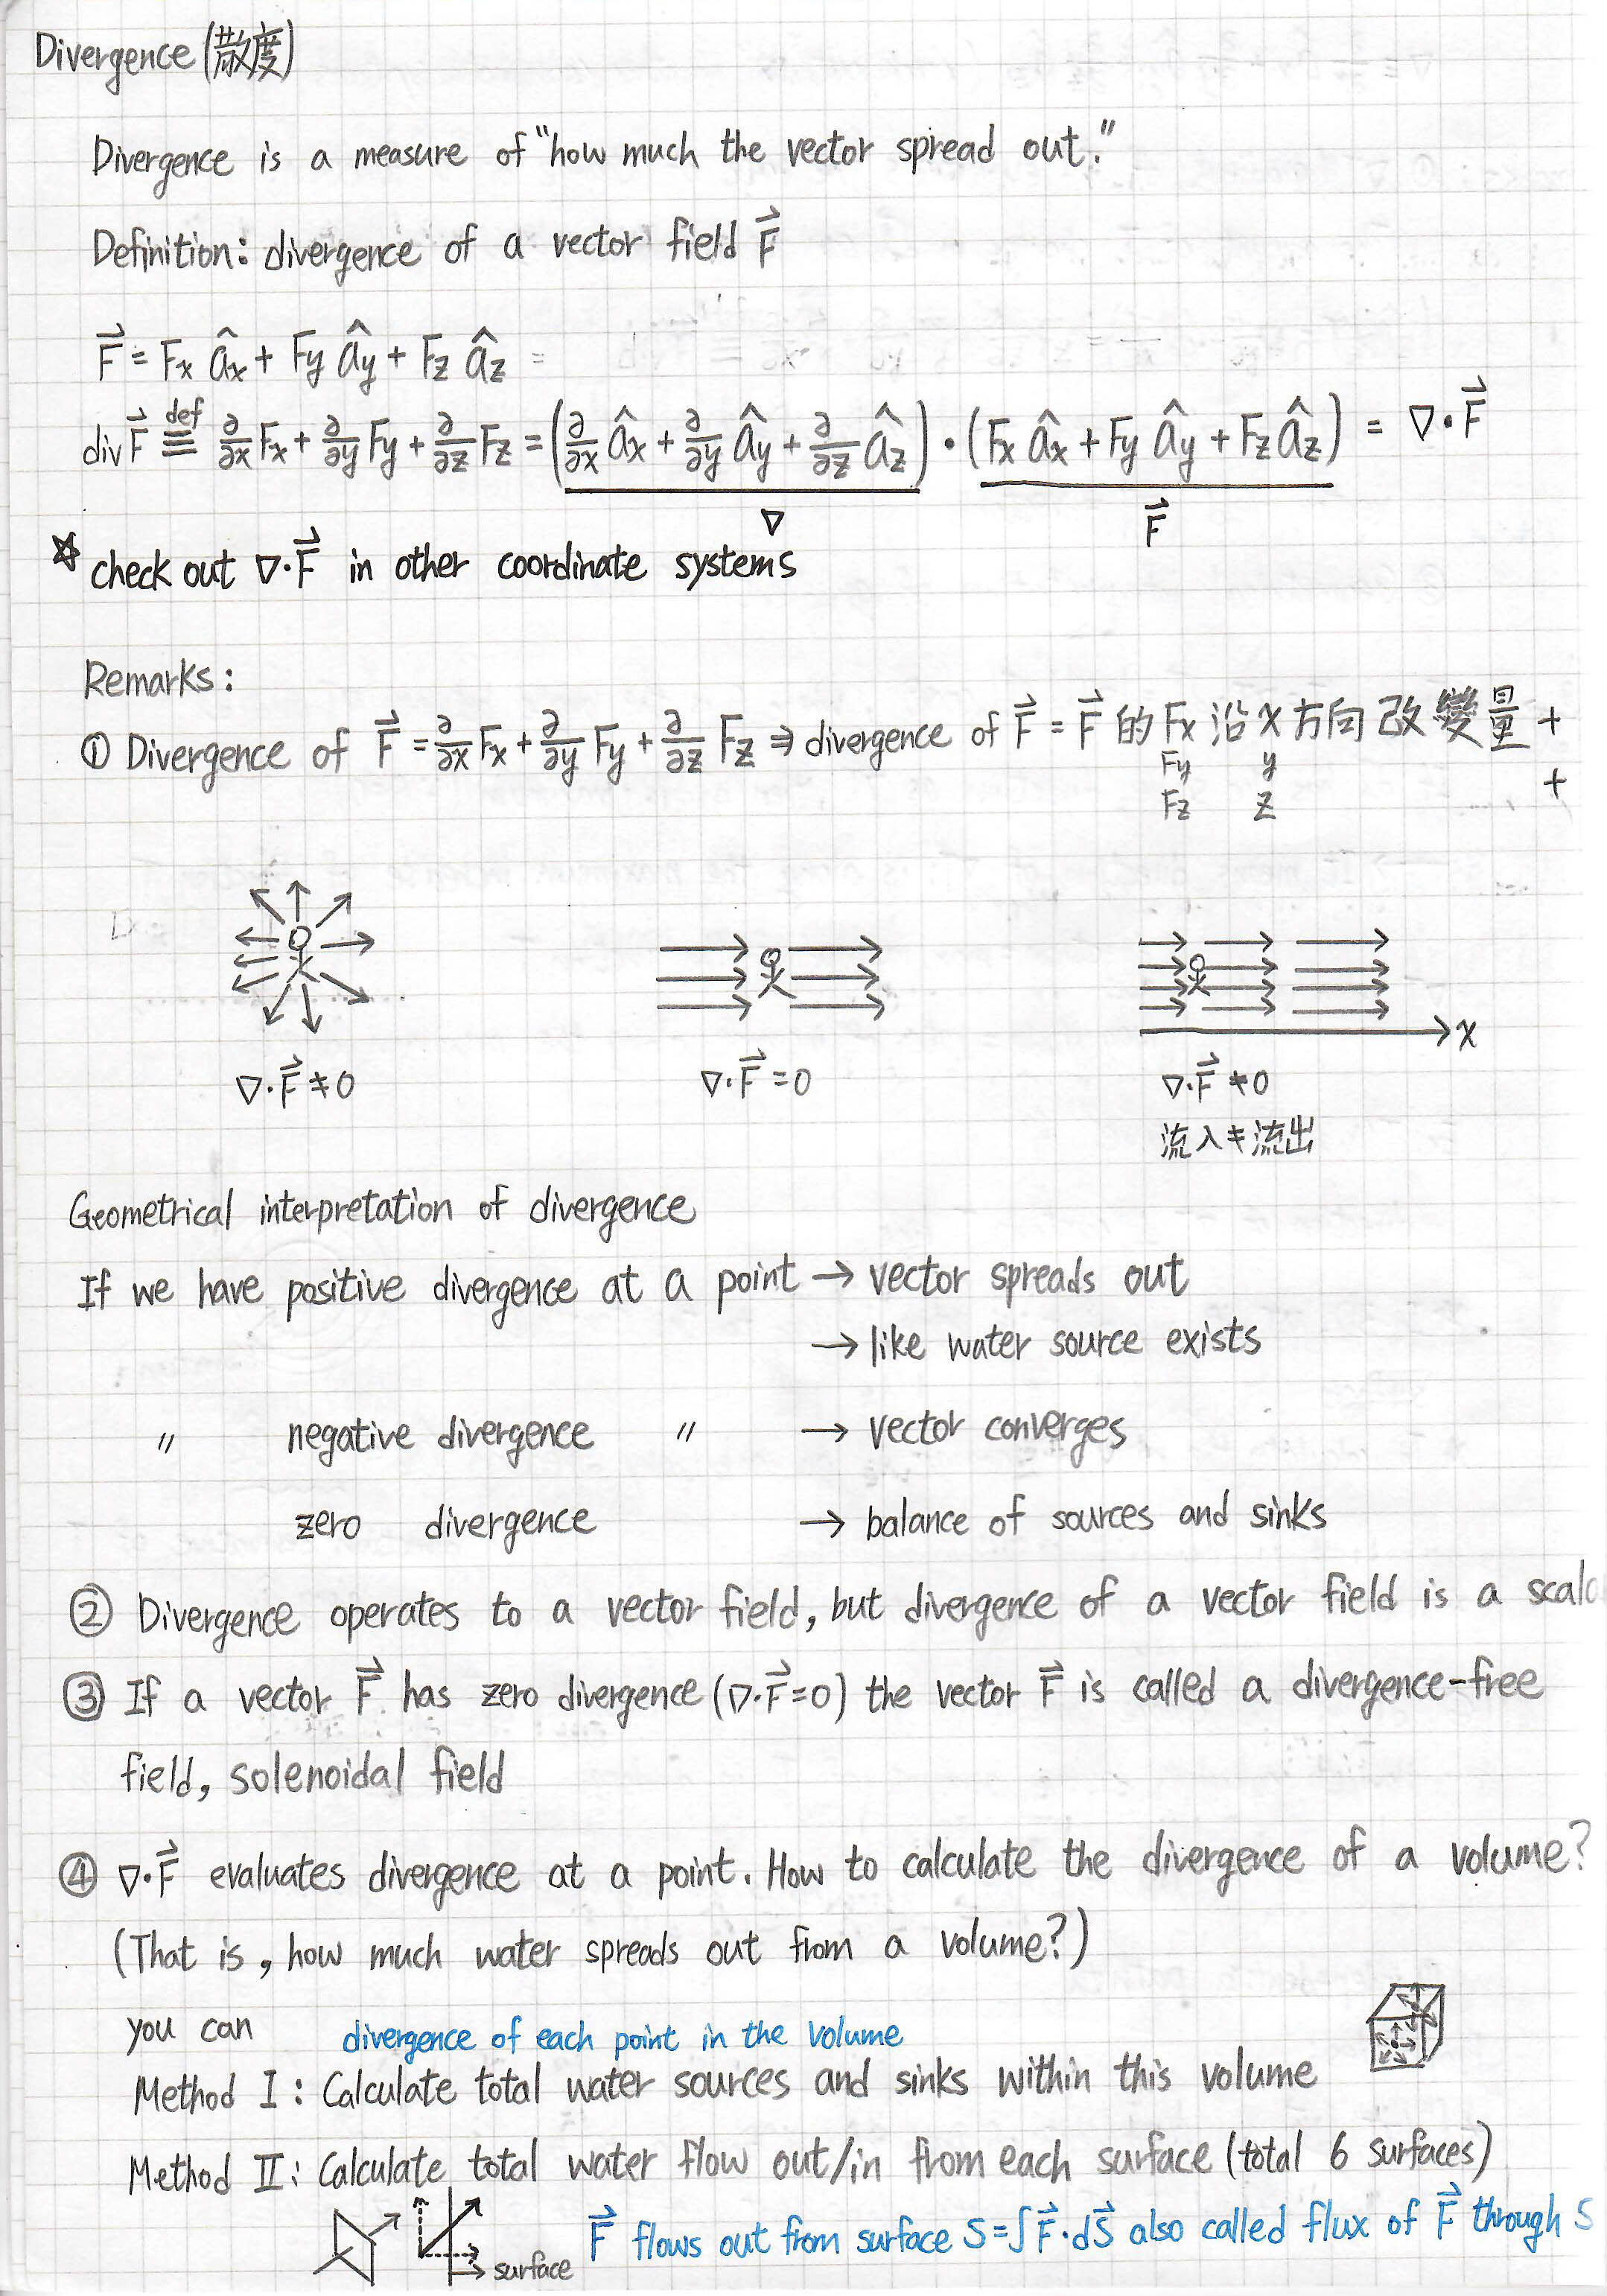 Divergence (散度)
Divergence is a measure of "how much the vector spread out."
Definition: divergence of a vector field F⃗
F⃗ = Fx âx + Fy ây + Fz âz =
div F⃗ ≡(def) ∂/∂x Fx + ∂/∂y Fy + ∂/∂z Fz = (∂/∂x âx + ∂/∂y ây + ∂/∂z âz) · (Fx âx + Fy ây + Fz âz) = ∇·F⃗
∇ F⃗
☆ check out ∇·F⃗ in other coordinate systems
Remarks:
① Divergence of F⃗ = ∂/∂x Fx + ∂/∂y Fy + ∂/∂z Fz ⇒ divergence of F⃗ = F⃗ 的 Fx 沿 x 方向 改變量 +
Fy y +
Fz z
x
∇·F⃗ ≠ 0 ∇·F⃗ = 0 ∇·F⃗ ≠ 0
流入≠流出
Geometrical interpretation of divergence
If we have positive divergence at a point → vector spreads out
→ like water source exists
〃 negative divergence 〃 → vector converges
zero divergence → balance of sources and sinks
② Divergence operates to a vector field, but divergence of a vector field is a scala
③ If a vector F⃗ has zero divergence (∇·F⃗=0) the vector F⃗ is called a divergence-free
field, solenoidal field
④ ∇·F⃗ evaluates divergence at a point. How to calculate the divergence of a volume?
(That is, how much water spreads out from a volume?)
you can divergence of each point in the volume
Method I: Calculate total water sources and sinks within this volume
Method II: Calculate total water flow out/in from each surface (total 6 surfaces)
F⃗ flows out from surface S = ∫F⃗·dS⃗ also called flux of F⃗ through S
surface